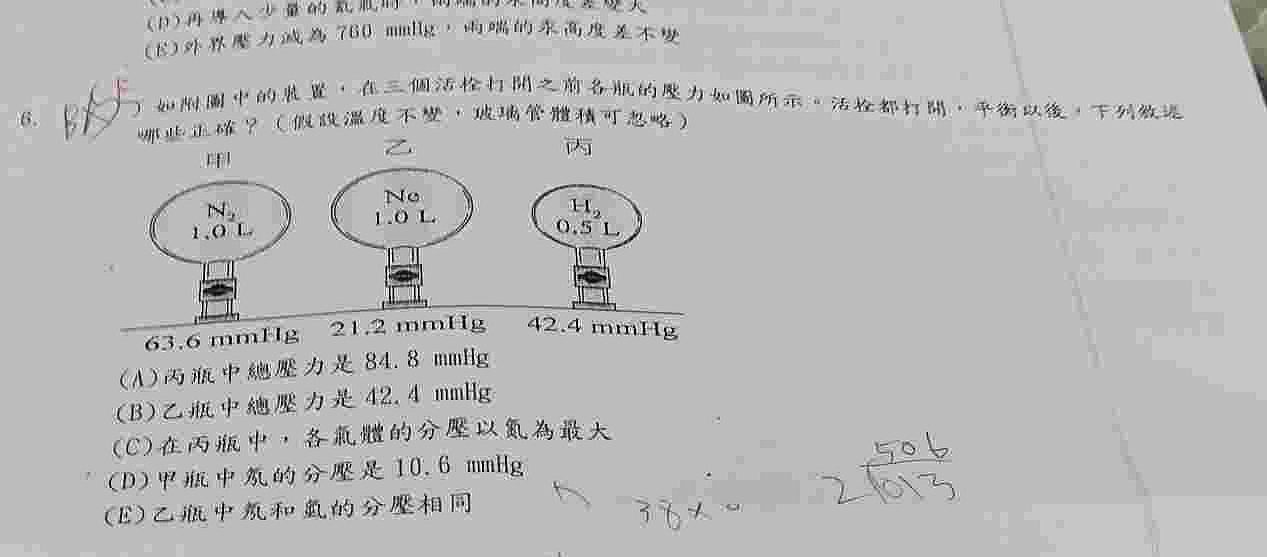 (D)再導入少量的氦氣時，兩端的汞高度差變大
(E)外界壓力減為 760 mmHg，兩端的汞高度差不變
6.
如附圖中的裝置，在三個活栓打開之前各瓶的壓力如圖所示。活栓都打開，平衡以後，下列敘述
哪些正確？（假設溫度不變，玻璃管體積可忽略）
甲 乙 丙
N₂ Ne H₂
1.0 L 1.0 L 0.5 L
63.6 mmHg 21.2 mmHg 42.4 mmHg
(A)丙瓶中總壓力是 84.8 mmHg
(B)乙瓶中總壓力是 42.4 mmHg
(C)在丙瓶中，各氣體的分壓以氮為最大
(D)甲瓶中氖的分壓是 10.6 mmHg
(E)乙瓶中氖和氫的分壓相同
506
2 1013
38×